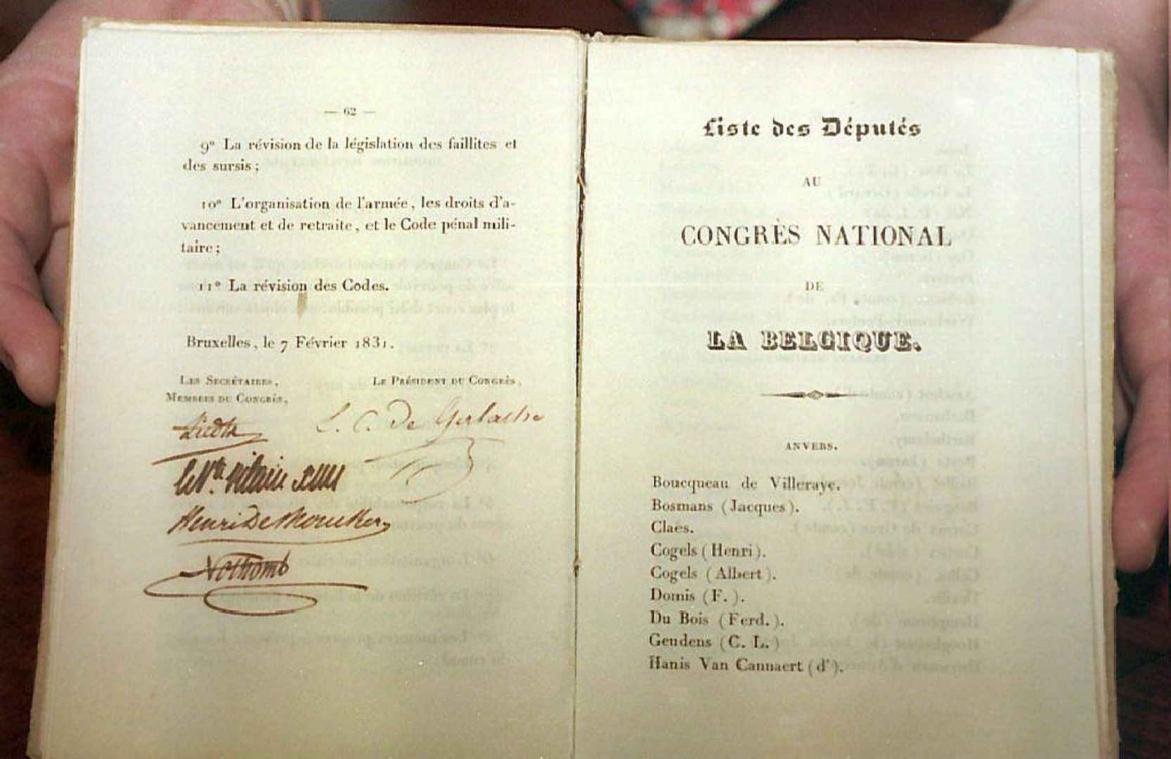 — 62 —
9° La révision de la législation des faillites et
des sursis ;
10° L'organisation de l'armée, les droits d'a-
vancement et de retraite, et le Code pénal mili-
taire ;
11° La révision des Codes.
Bruxelles, le 7 Février 1831.
Les Secrétaires,
Membres du Congrès,
Le Président du Congrès,
Liedts
E. C. De Gerlache
le Vte. Vilain XIIII
Henri De Brouckere
Nothomb
Liste des Députés
AU
CONGRÈS NATIONAL
DE
LA BELGIQUE.
ANVERS.
Boucqueau de Villeraye.
Bosmans (Jacques).
Claes.
Cogels (Henri).
Cogels (Albert).
Domis (F.).
Du Bois (Ferd.).
Geudens (C. L.)
Hanis Van Cannaert (d').